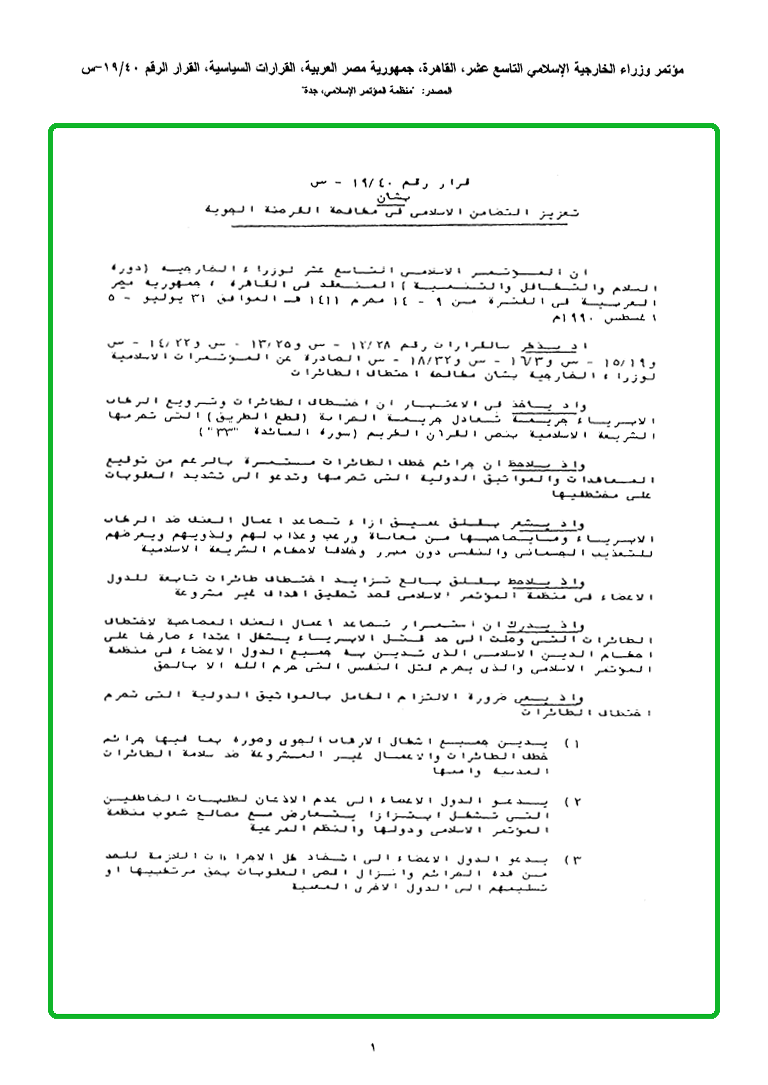 مؤتمر وزراء الخارجية الإسلامي التاسع عشر، القاهرة، جمهورية مصر العربية، القرارات السياسية، القرار الرقم ١٩/٤٠-س
المصدر: "منظمة المؤتمر الإسلامي، جدة"
قرار رقم ١٩/٤٠ - س
بشأن
تعزيز التضامن الاسلامى فى مكافحة القرصنة الجوية
ان المؤتمر الاسلامى التاسع عشر لوزراء الخارجية (دورة
السلام والتكافل والتنمية) المنعقد فى القاهرة ، جمهورية مصر
العربية فى الفترة من ٩ - ١٤ محرم ١٤١١ هـ الموافق ٣١ يوليو - ٥
اغسطس ١٩٩٠م
اذ يذكر بالقرارات رقم ١٢/٢٨ - س و١٣/٢٥ - س و١٤/٢٢ - س
و١٥/١٩ - س و١٦/٣ - س و١٨/٣٢ - س الصادرة عن المؤتمرات الاسلامية
لوزراء الخارجية بشأن مكافحة اختطاف الطائرات
واذ يأخذ فى الاعتبار ان اختطاف الطائرات وترويع الركاب
الابرياء جريمة تعادل جريمة الحرابة (قطع الطريق) التى تحرمها
الشريعة الاسلامية بنص القرآن الكريم (سورة المائدة "٣٣")
واذ يلاحظ ان جرائم خطف الطائرات مستمرة بالرغم من توقيع
المعاهدات والمواثيق الدولية التى تحرمها وتدعو الى تشديد العقوبات
على مختطفيها
واذ يشعر بقلق عميق ازاء تصاعد اعمال العنف ضد الركاب
الابرياء ومايصاحبها من معاناة ورعب وعذاب لهم ولذويهم ويعرضهم
للتعذيب الجسمانى والنفسى دون مبرر وخلافا لاحكام الشريعة الاسلامية
واذ يلاحظ بقلق بالغ تزايد اختطاف طائرات تابعة للدول
الاعضاء فى منظمة المؤتمر الاسلامى قصد تحقيق اهداف غير مشروعة
واذ يدرك ان استمرار تصاعد اعمال العنف المصاحبة لاختطاف
الطائرات التى وصلت الى حد قتل الابرياء يشكل اعتداء صارخا على
احكام الدين الاسلامى الذى تدين به جميع الدول الاعضاء فى منظمة
المؤتمر الاسلامى والذى يحرم قتل النفس التى حرم الله الا بالحق
واذ يعى ضرورة الالتزام الكامل بالمواثيق الدولية التى تحرم
اختطاف الطائرات
١) يدين جميع اشكال الارهاب الجوى وصوره بما فيها جرائم
خطف الطائرات والاعمال غير المشروعة ضد سلامة الطائرات
المدنية وامنها
٢) يدعو الدول الاعضاء الى عدم الاذعان لطلبات الخاطفين
التى تشكل ابتزازا يتعارض مع مصالح شعوب منظمة
المؤتمر الاسلامى ودولها والنظم المرعية
٣) يدعو الدول الاعضاء الى اتخاذ كل الاجراءات اللازمة للحد
من هذه الجرائم وانزال اقصى العقوبات بحق مرتكبيها او
تسليمهم الى الدول الاخرى المعنية
١